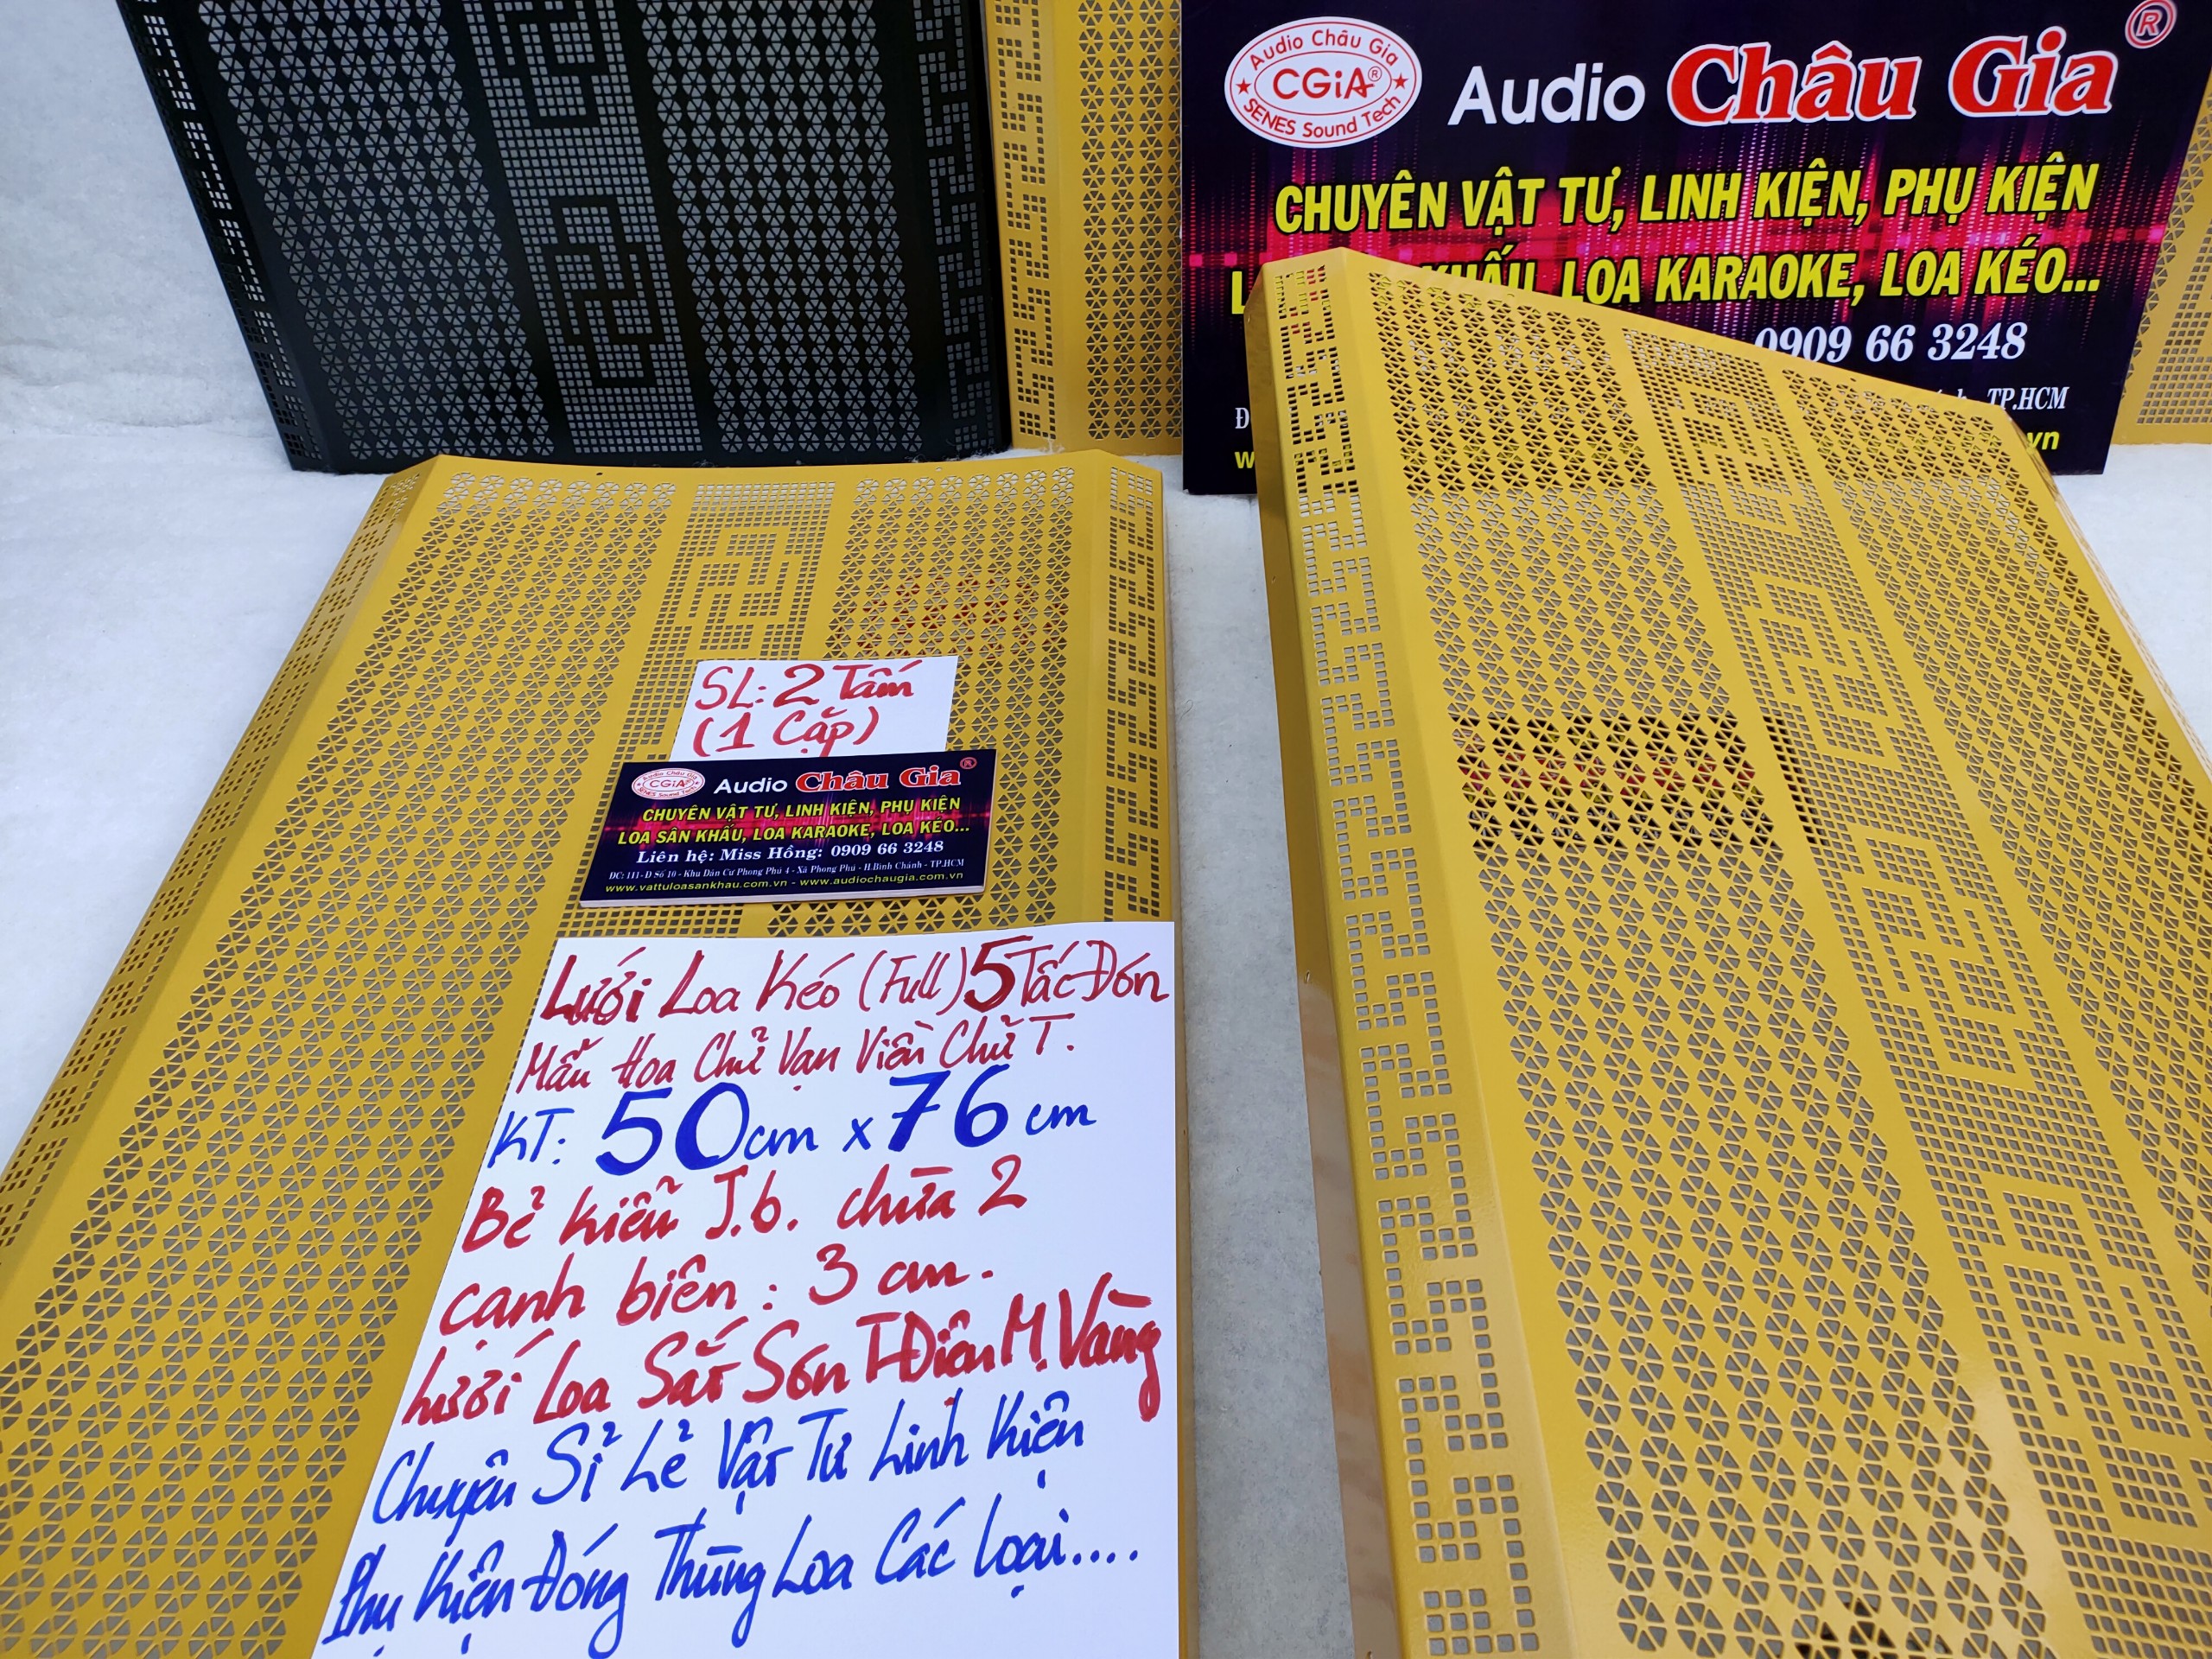 Audio Châu Gia
CGiA®
SENES Sound Tech
Audio Châu Gia ®
CHUYÊN VẬT TƯ, LINH KIỆN, PHỤ KIỆN
KHẤU, LOA KARAOKE, LOA KÉO...
0909 66 3248
TP.HCM
SL: 2 Tấm
(1 Cặp)
Audio Châu Gia
CGiA
SENES Sound Tech
Audio Châu Gia ®
CHUYÊN VẬT TƯ, LINH KIỆN, PHỤ KIỆN
LOA SÂN KHẤU, LOA KARAOKE, LOA KÉO...
Liên hệ: Miss Hồng: 0909 66 3248
ĐC: 111- Đ Số 10 - Khu Dân Cư Phong Phú 4 - Xã Phong Phú - H.Bình Chánh - TP.HCM
www.vattuloasankhau.com.vn - www.audiochaugia.com.vn
Lưới Loa Kéo (Full) 5 Tấc Đón
Mẫu Hoa Chữ Vạn Viền Chữ T.
KT: 50cm x 76cm
Bẻ kiểu J.b. chừa 2
cạnh biên: 3 cm.
Lưới Loa Sắt Sơn T Điện M. Vàng
Chuyên Sỉ Lẻ Vật Tư Linh Kiện
Phụ Kiện Đóng Thùng Loa Các Loại....